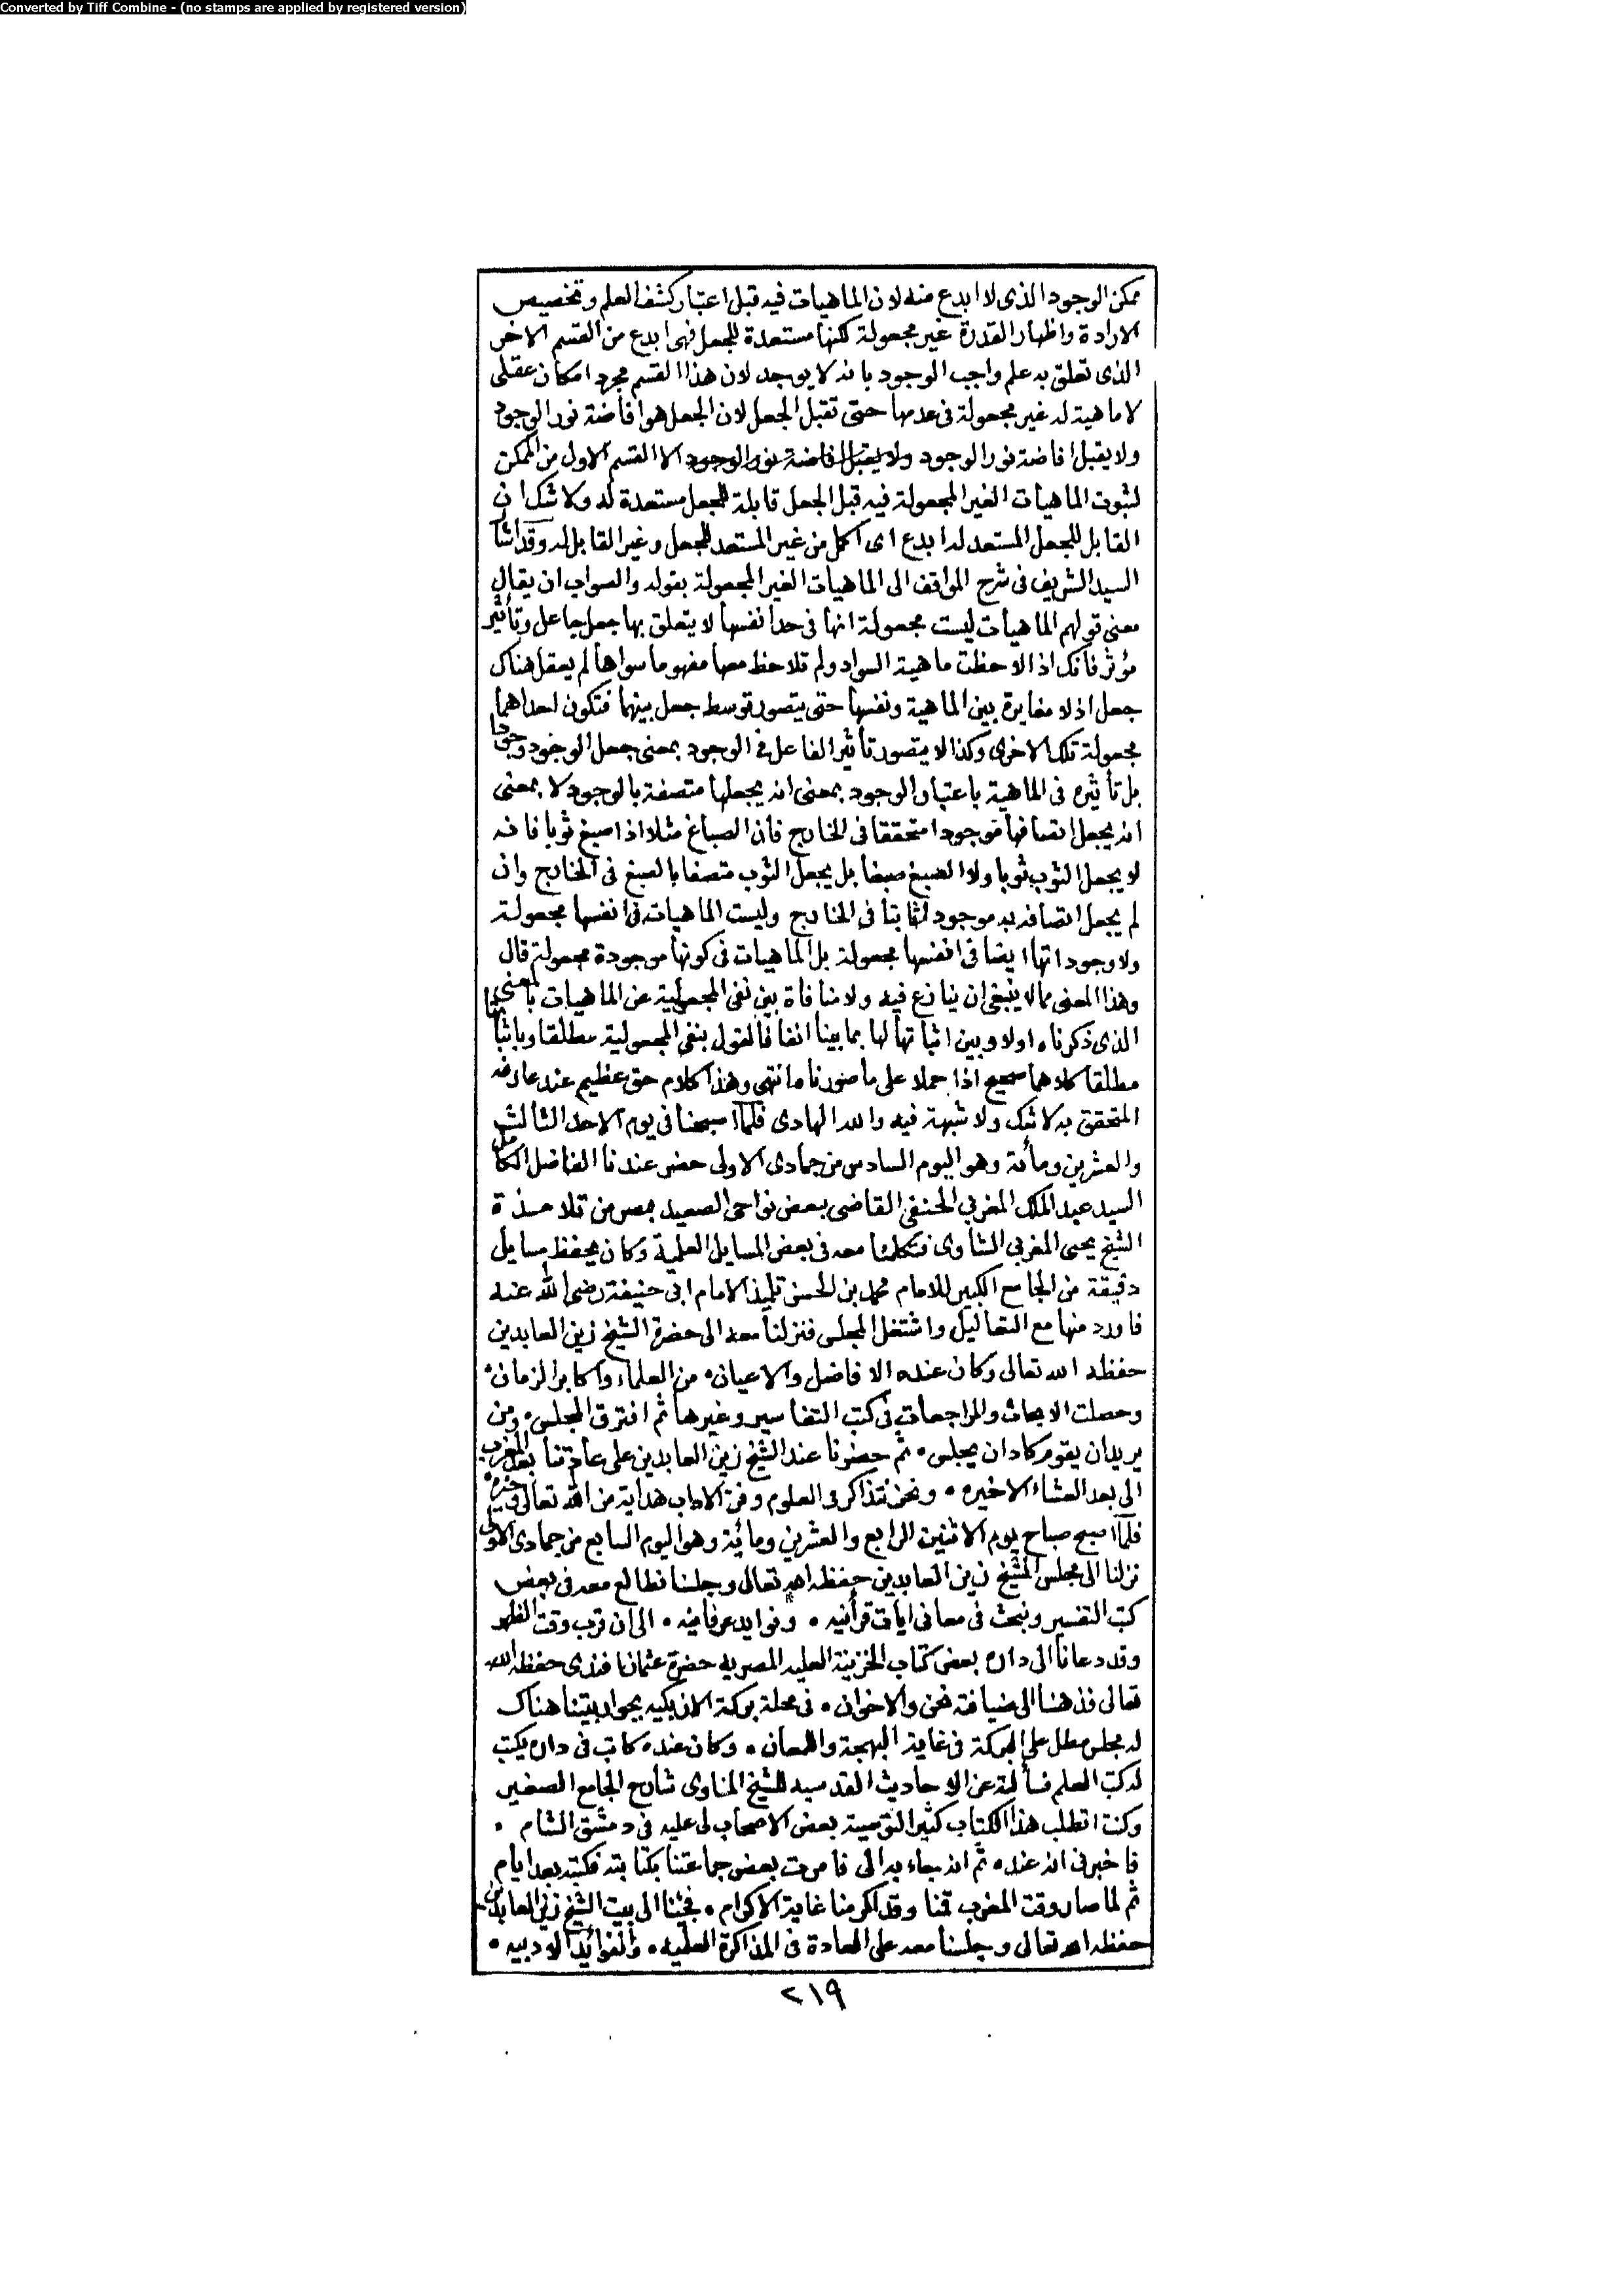 Converted by Tiff Combine - (no stamps are applied by registered version)
ممكن الوجود الذى لا ابدع منه لان الماهيات فيه قبل اعتبار كشف العلم وتخصيص
الارادة واظهار القدرة غير مجعولة لكنها مستعدة للجعل فهى ابدع من القسم الاخر
الذى تعلق به علم واجب الوجود بانه لا يوجد لان هذا القسم مجرد امكان عقلى
لا ماهية له غير مجعولة فى عدمها حتى تقبل الجعل لان الجعل هو افاضة نور الوجود
ولا يقبل افاضة نور الوجود ولا يقبل افاضة نور الوجود الا القسم الاول من الممكن
لثبوت الماهيات الغير المجعولة فيه قبل الجعل قابلة للجعل مستعدة له ولا شك ان
القابل للجعل المستعد له ابدع اى اكمل من غير المستعد للجعل وغير القابل له وقد اشار
السيد الشريف فى شرح المواقف الى الماهيات الغير المجعولة بقوله والصواب ان يقال
معنى قولهم الماهيات ليست مجعولة انها فى حد انفسها لا يتعلق بها جعل جاعل وتأثير
مؤثر فانك اذا لاحظت ماهية السواد ولم تلاحظ معها مفهوما سواها لم يعقل هناك
جعل اذ لا مغايرة بين الماهية ونفسها حتى يتصور توسط جعل بينهما فتكون احداهما
مجعولة تلك الاخرى وكذا لا يتصور تأثير الفاعل فى الوجود بمعنى جعل الوجود وجودا
بل تأثيره فى الماهية باعتبار الوجود بمعنى انه يجعلها متصفة بالوجود لا بمعنى
انه يجعل اتصافها موجودا متحققا فى الخارج فان الصباغ مثلا اذا صبغ ثوبا فانه
لا يجعل الثوب ثوبا ولا الصبغ صبغا بل يجعل الثوب متصفا بالصبغ فى الخارج وان
لم يجعل اتصافه به موجودا ثابتا فى الخارج وليست الماهيات فى انفسها مجعولة
ولا وجوداتها ايضا فى انفسها مجعولة بل الماهيات فى كونها موجودة مجعولة قال
وهذا المعنى مما لا ينبغى ان ينازع فيه ولا منافاة بين نفى المجعولية عن الماهيات بالمعنى
الذى ذكرناه اولا وبين اثباتها لها بما بينا انفا فالقول بنفى المجعولية مطلقا وباثباتها
مطلقا كلاهما صحيح اذا حملا على ما صورناه انتهى وهذا كلام حق عظيم عند عارفه
المتحقق به لا شك ولا شبهة فيه والله الهادى فلما اصبحنا فى يوم الاحد الثالث
والعشرين ومأئة وهو اليوم السادس من جمادى الاولى حضر عندنا الفاضل الكامل
السيد عبد الملك المغربى الحنفى القاضى ببعض نواحى الصعيد بمصر من تلامذة
الشيخ يحيى المغربى الشاوى فتكلمنا معه فى بعض المسايل العلمية وكان يحفظ مسايل
دقيقة من الجامع الكبير للامام محمد بن الحسن تلميذ الامام ابى حنيفة رضى الله عنه
فاورد منها مع التعاليل واشتغل المجلس فنزلنا معه الى حضرة الشيخ زين العابدين
حفظه الله تعالى وكان عنده الافاضل والاعيان ٠ من العلماء واكابر الزمان ٠
وحصلت الابحاث والمراجعات فى كتب التفاسير وغيرها ثم افترق المجلس ٠ ومن
يريد ان يقوم كاد ان يجلس ٠ ثم حضرنا عند الشيخ زين العابدين على عادتنا بعد المغرب
الى بعد العشاء الاخيره ٠ ونحن نتذاكر فى العلوم وفى الاداب هداية من الله تعالى وخيره
فلما اصبح صباح يوم الاثنين الرابع والعشرين ومائة وهو اليوم السابع من جمادى الاولى
نزلنا الى مجلس الشيخ زين العابدين حفظه الله تعالى وجلسنا نطالع معه فى بعض
كتب التفسير ونبحث فى معانى ايات قرأنيه ٠ وفوايد عرفانيه ٠ الى ان قرب وقت الظهر
وقد دعانا الى داره بعض كتاب الخزينة العليه المصريه حضرة عثمان افندى حفظه الله
تعالى فذهبنا الى ضيافته نحن والاخوان ٠ فى محلة بركة الازبكيه بجوار بيتنا هناك
له مجلس مطل على البركة فى غاية البهجة واللمعان ٠ وكان عنده كاتب فى داره يكتب
له كتب العلم فسألته عن الاحاديث القدسيه للشيخ المناوى شارح الجامع الصغير
وكنت اتطلب هذا الكتاب كثيرا لتوصية بعض الاصحاب لى عليه فى دمشق الشام ٠
فاخبرنى انه عنده ثم انه جاء به الى فامرت بعض جماعتنا بكتابته فكتبه بعد ايام
ثم لما صار وقت المغرب قمنا وقد اكرمنا غاية الاكرام ٠ فجئنا الى بيت الشيخ زين العابدين
حفظه الله تعالى وجلسنا معه على العادة فى المذاكرة العلميه ٠ والفوائد الادبيه ٠
٢١٩